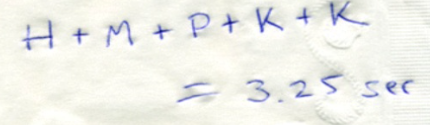 H + M + P + K + K
= 3.25 sec